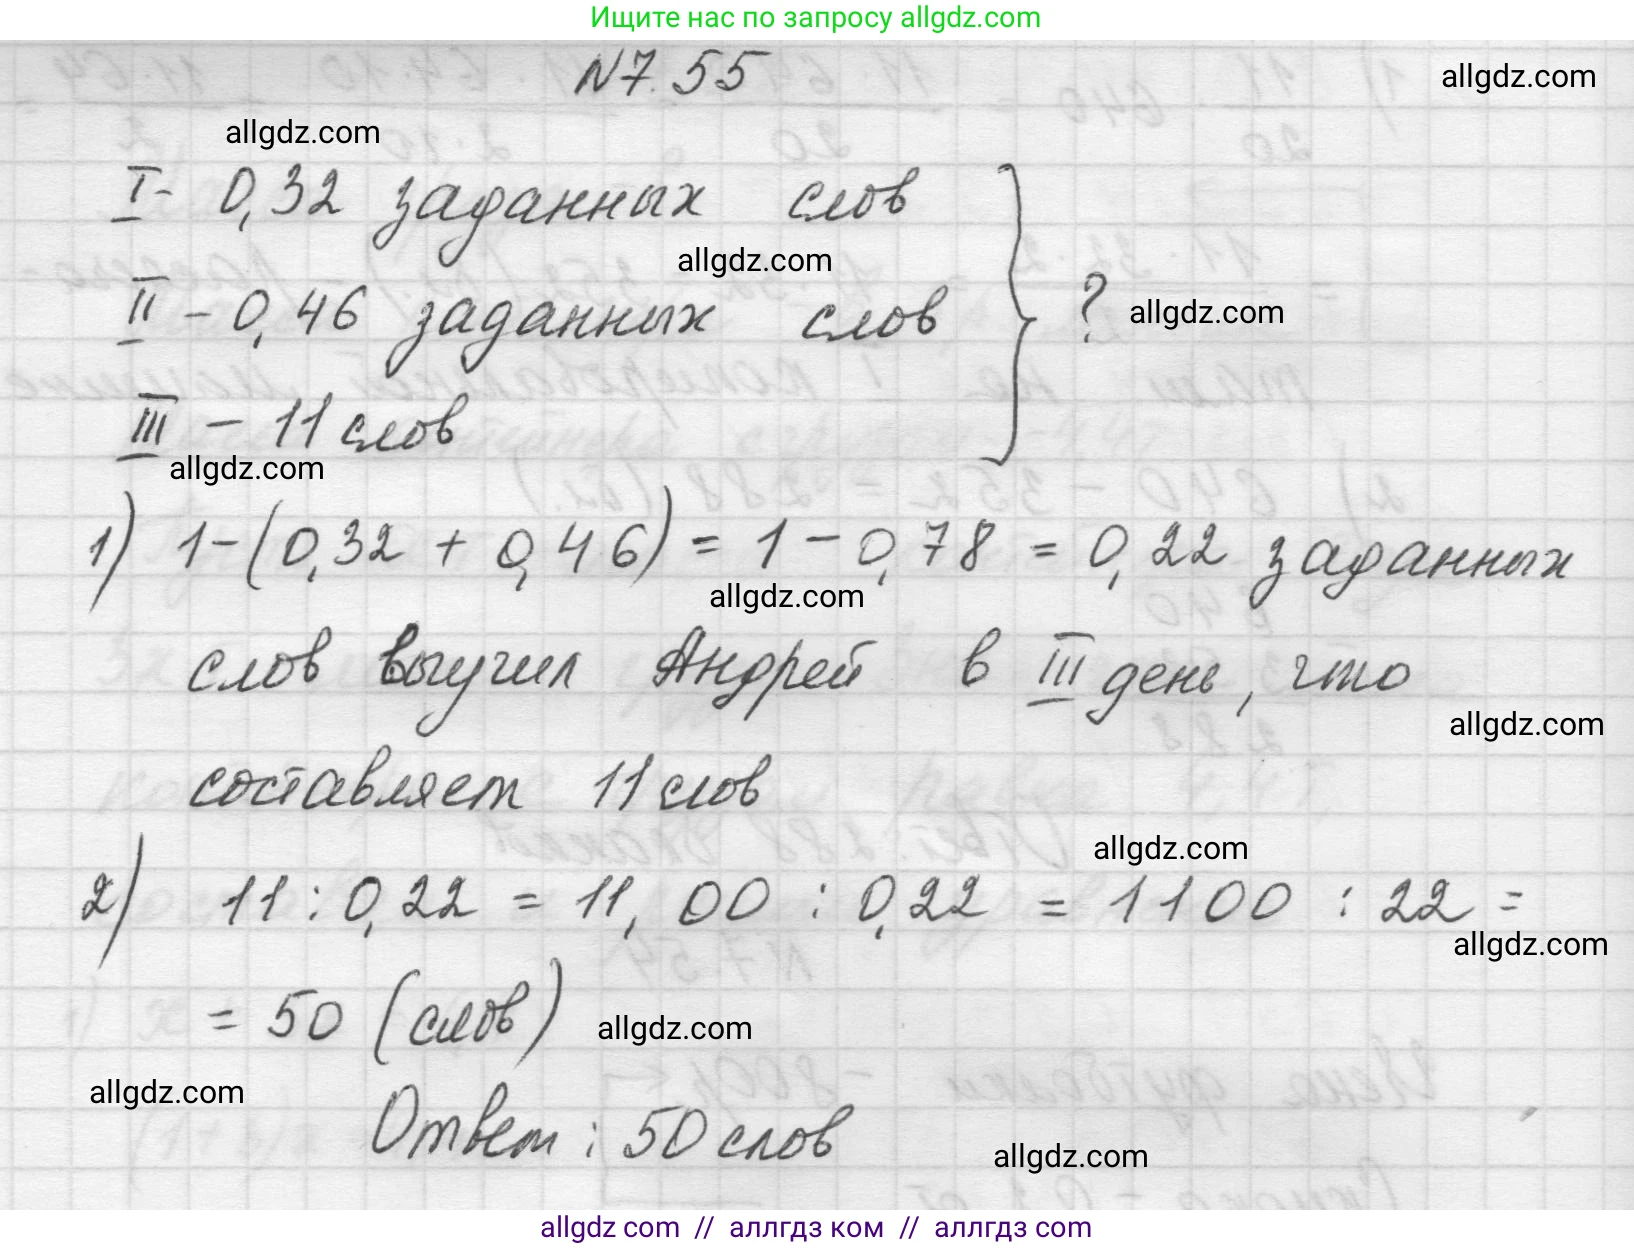 Ищите нас по запросу allgdz.com
N7.55
allgdz.com
allgdz.com
I - 0,32 заданных слов
allgdz.com
II - 0,46 заданных слов } ?
allgdz.com
III - 11 слов
allgdz.com
1) 1-(0,32 + 0,46) = 1 - 0,78 = 0,22 заданных
allgdz.com
слов выучил Андрей в III день, что
allgdz.com
составляет 11 слов
allgdz.com
2) 11 : 0,22 = 11,00 : 0,22 = 1100 : 22 =
allgdz.com
= 50 (слов)
allgdz.com
allgdz.com
Ответ : 50 слов
allgdz.com
allgdz com // аллгдз ком // аллгдз com